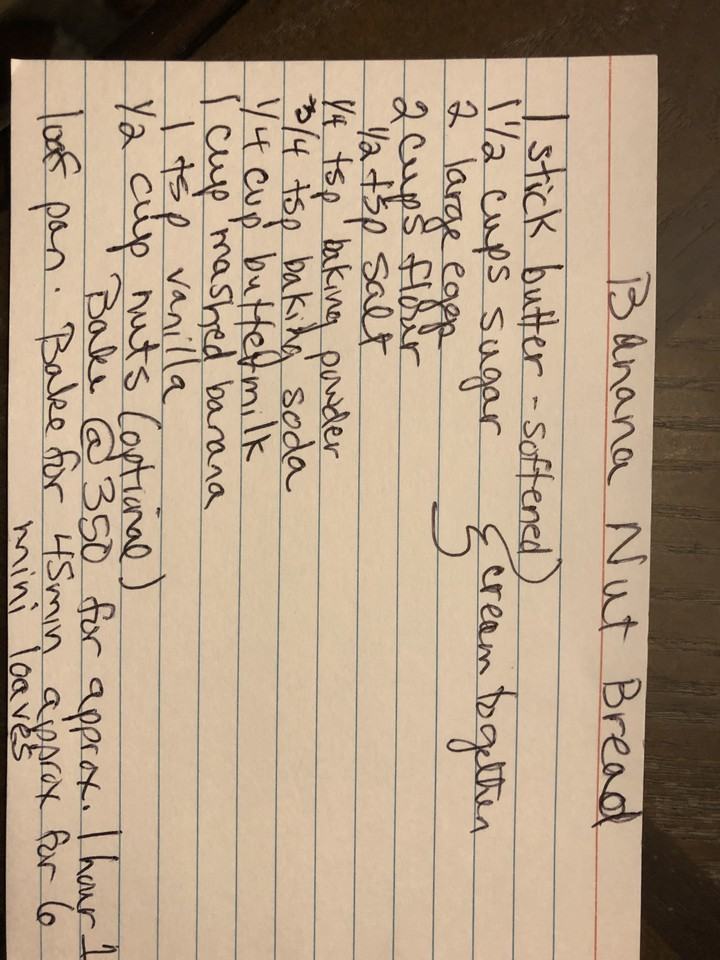 Banana Nut Bread
1 stick butter - softened
1 1/2 cups sugar } cream together
2 large eggs
2 cups flour
1/2 tsp salt
1/4 tsp baking powder
3/4 tsp baking soda
1/4 cup buttermilk
1 cup mashed banana
1 tsp vanilla
1/2 cup nuts (optional)
Bake @ 350 for approx. 1 hour 1
loaf pan. Bake for 45min approx for 6
mini loaves